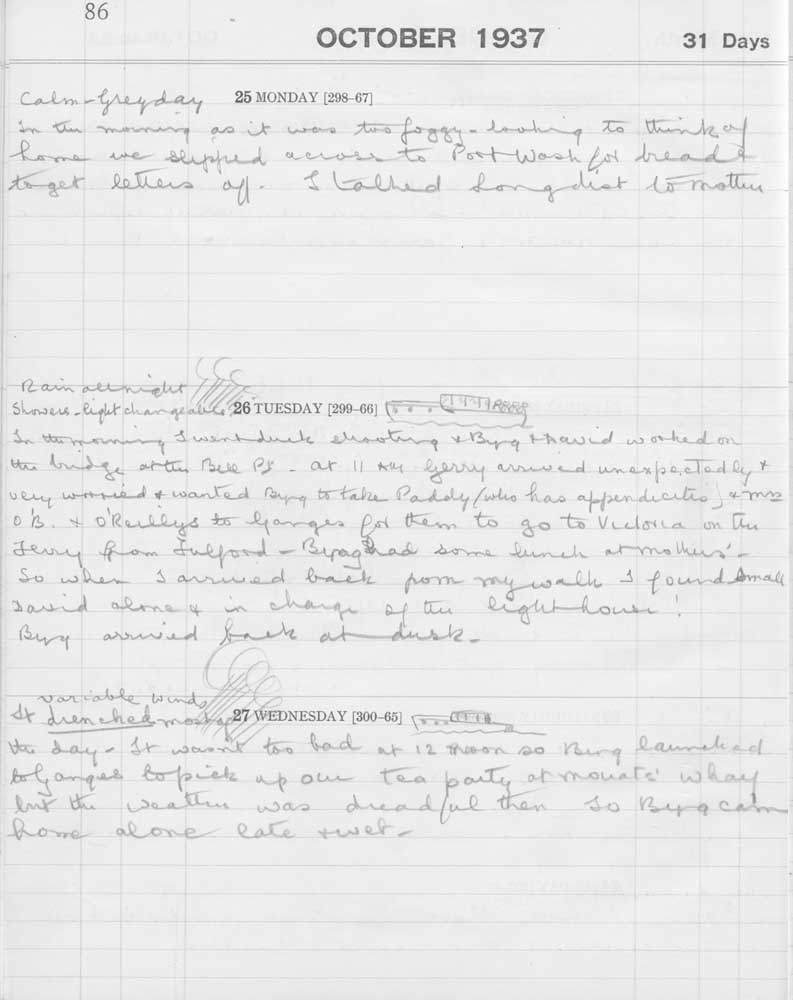 86
OCTOBER 1937 31 Days
Calm - Grey day 25 MONDAY [298–67]
In the morning as it was too foggy-looking to think of
home we slipped across to Port Wash for bread &
to get letters off. I talked Long dist to Mother
Rain all night
Showers - light changeable 26 TUESDAY [299–66]
In the morning I went duck shooting & Byng & David worked on
the bridge at the Bell - at 11 Gerry arrived unexpectedly &
very worried & wanted Byng to take Paddy (who has appendicitis) & Mrs
O'B. & O'Reillys to Ganges for them to go to Victoria on the
Ferry from Fulford - Byng had some lunch at Mothers' -
So when I arrived back from my walk I found small
David alone & in charge of the lighthouse!
Byng arrived back at dusk -
variable winds
It drenched most of 27 WEDNESDAY [300–65]
the day - It wasn't too bad at 12 noon so Byng launched
to Ganges to pick up our tea party at Mouats' wharf
but the weather was dreadful then so Byng came
home alone late & wet -